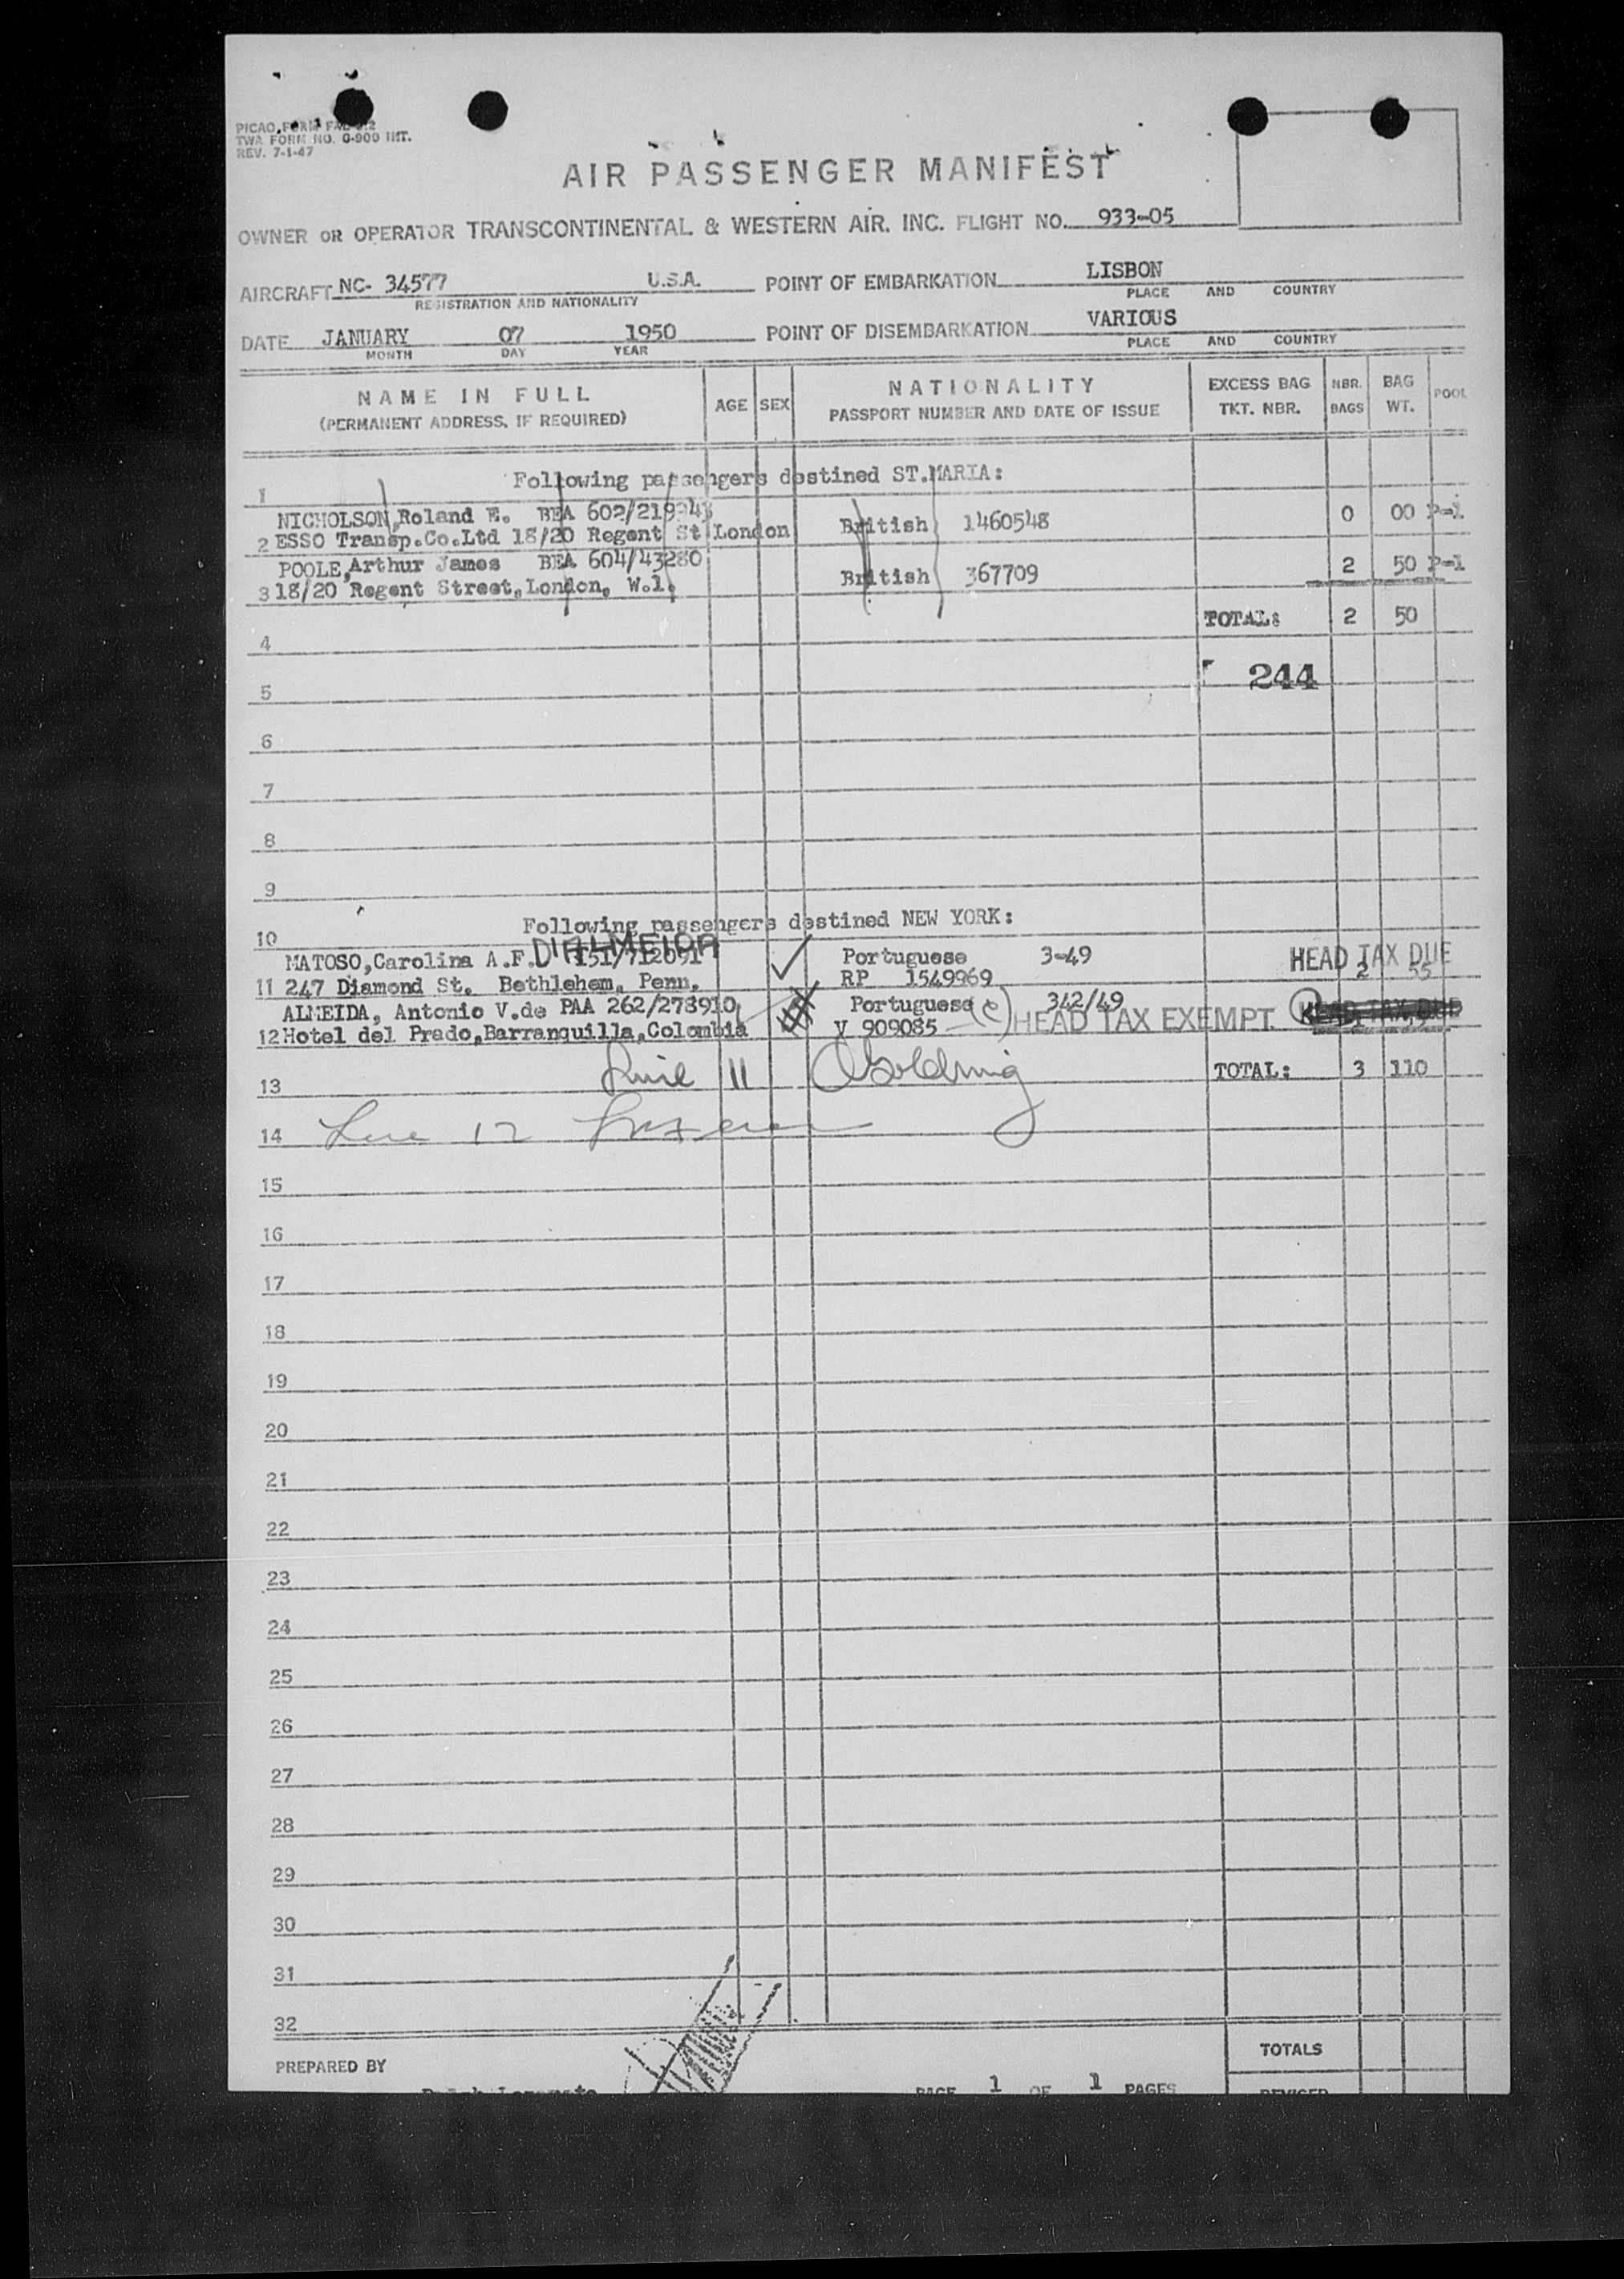 PICAO FORM FAL
TWA FORM NO. O-900 INT.
REV. 7-1-47
AIR PASSENGER MANIFEST
OWNER OR OPERATOR TRANSCONTINENTAL & WESTERN AIR, INC. FLIGHT NO. 933-05
AIRCRAFT NC- 34577 U.S.A. POINT OF EMBARKATION LISBON
REGISTRATION AND NATIONALITY PLACE AND COUNTRY
DATE JANUARY 07 1950 POINT OF DISEMBARKATION VARIOUS
MONTH DAY YEAR PLACE AND COUNTRY
NAME IN FULL AGE SEX NATIONALITY EXCESS BAG NBR. BAG POOL
(PERMANENT ADDRESS, IF REQUIRED) PASSPORT NUMBER AND DATE OF ISSUE TKT. NBR. BAGS WT.
1 Following passengers destined ST.MARIA:
NICHOLSON,Roland E. BEA British 1460548 0 00 P-1
2 ESSO Transp.Co.Ltd 18/20 Regent St London
POOLE,Arthur James BEA 604/43280 British 367709 2 50 P-1
3 18/20 Regent Street,London, W.1.
TOTAL: 2 50
4
244
5
6
7
8
9
Following passengers destined NEW YORK:
10
MATOSO,Carolina A.F. D'ALMEIDA Portuguese 3-49 HEAD TAX DUE
11 247 Diamond St. Bethlehem, Penn. RP 1549969 2 55
ALMEIDA, Antonio V.de PAA 262/278910 Portuguese (c) 342/49 HEAD TAX EXEMPT. HEAD TAX DUE
12 Hotel del Prado,Barranquilla,Colombia V 909085
13 Line 11 Golding TOTAL: 3 110
14 Line 12
15
16
17
18
19
20
21
22
23
24
25
26
27
28
29
30
31
32
TOTALS
PREPARED BY
PAGE 1 OF 1 PAGES